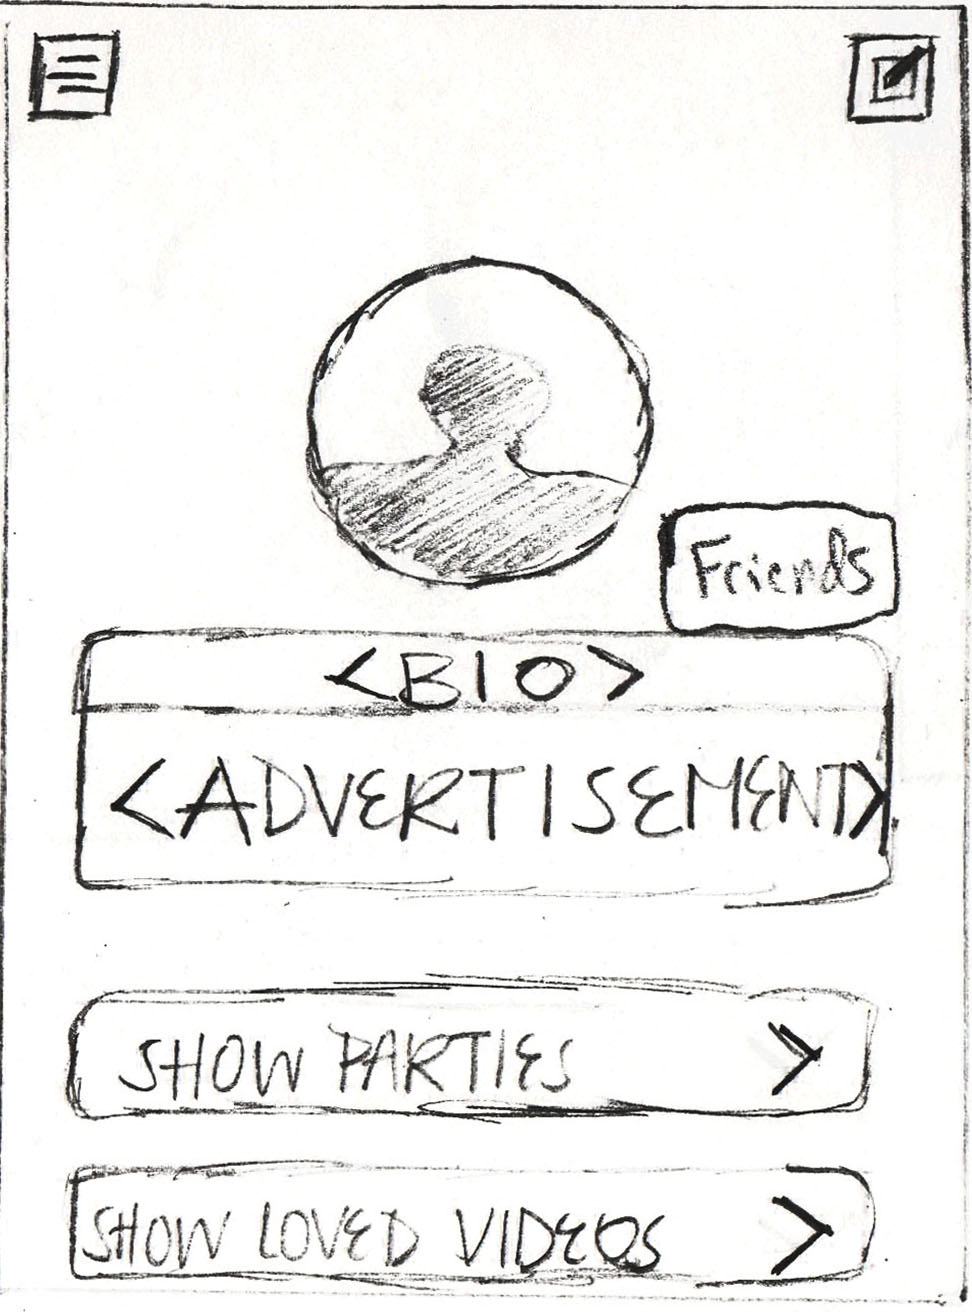 Friends
<BIO>
<ADVERTISEMENT>
SHOW PARTIES >
SHOW LOVED VIDEOS >